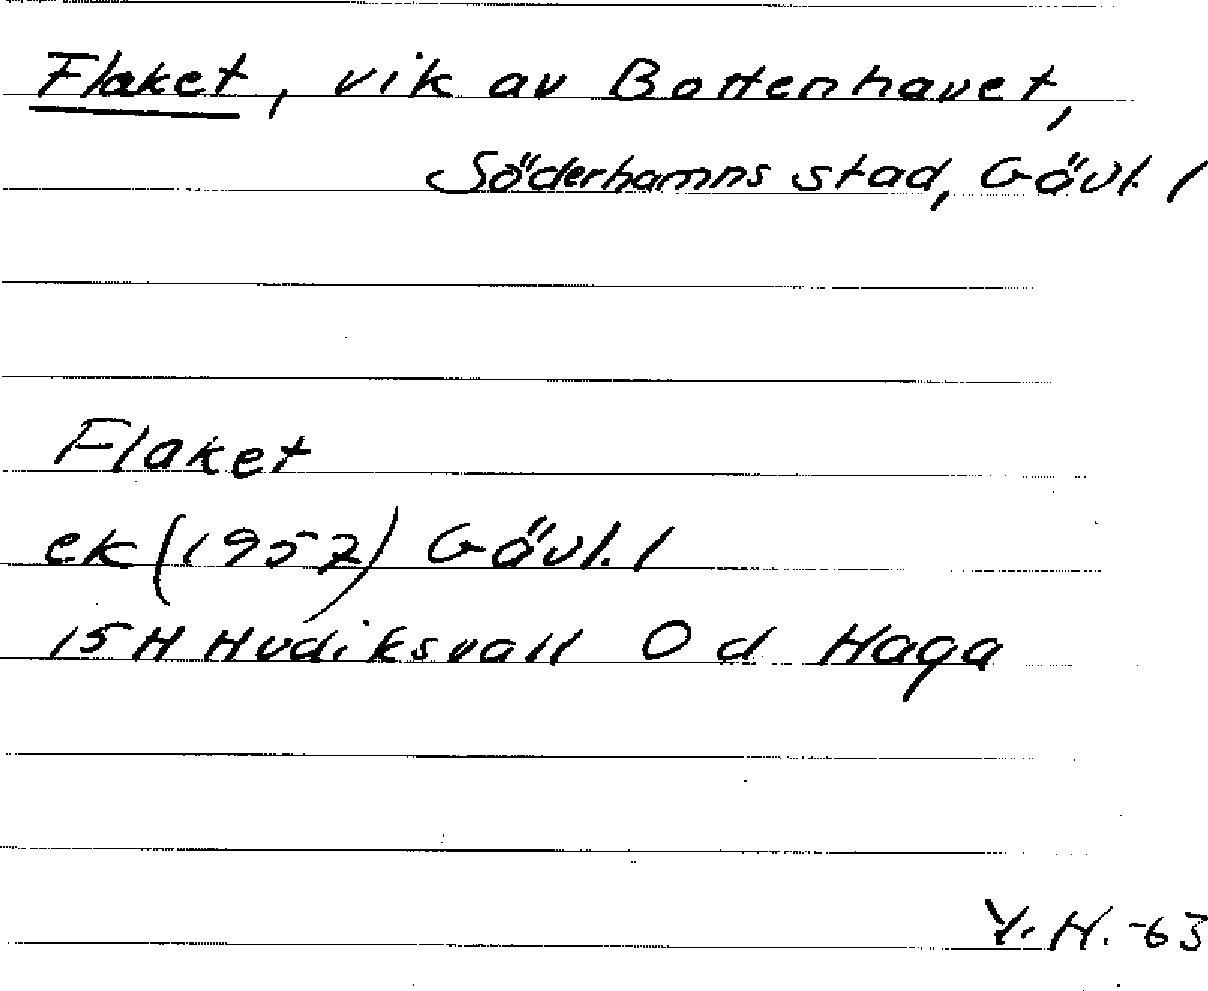 Flaket, vik av Bottenhavet,
Söderhamns stad, Gävl. l
Flaket
ek (1957) Gävl. l
15 H Hudiksvall 0 d Haga
Y. H. -63